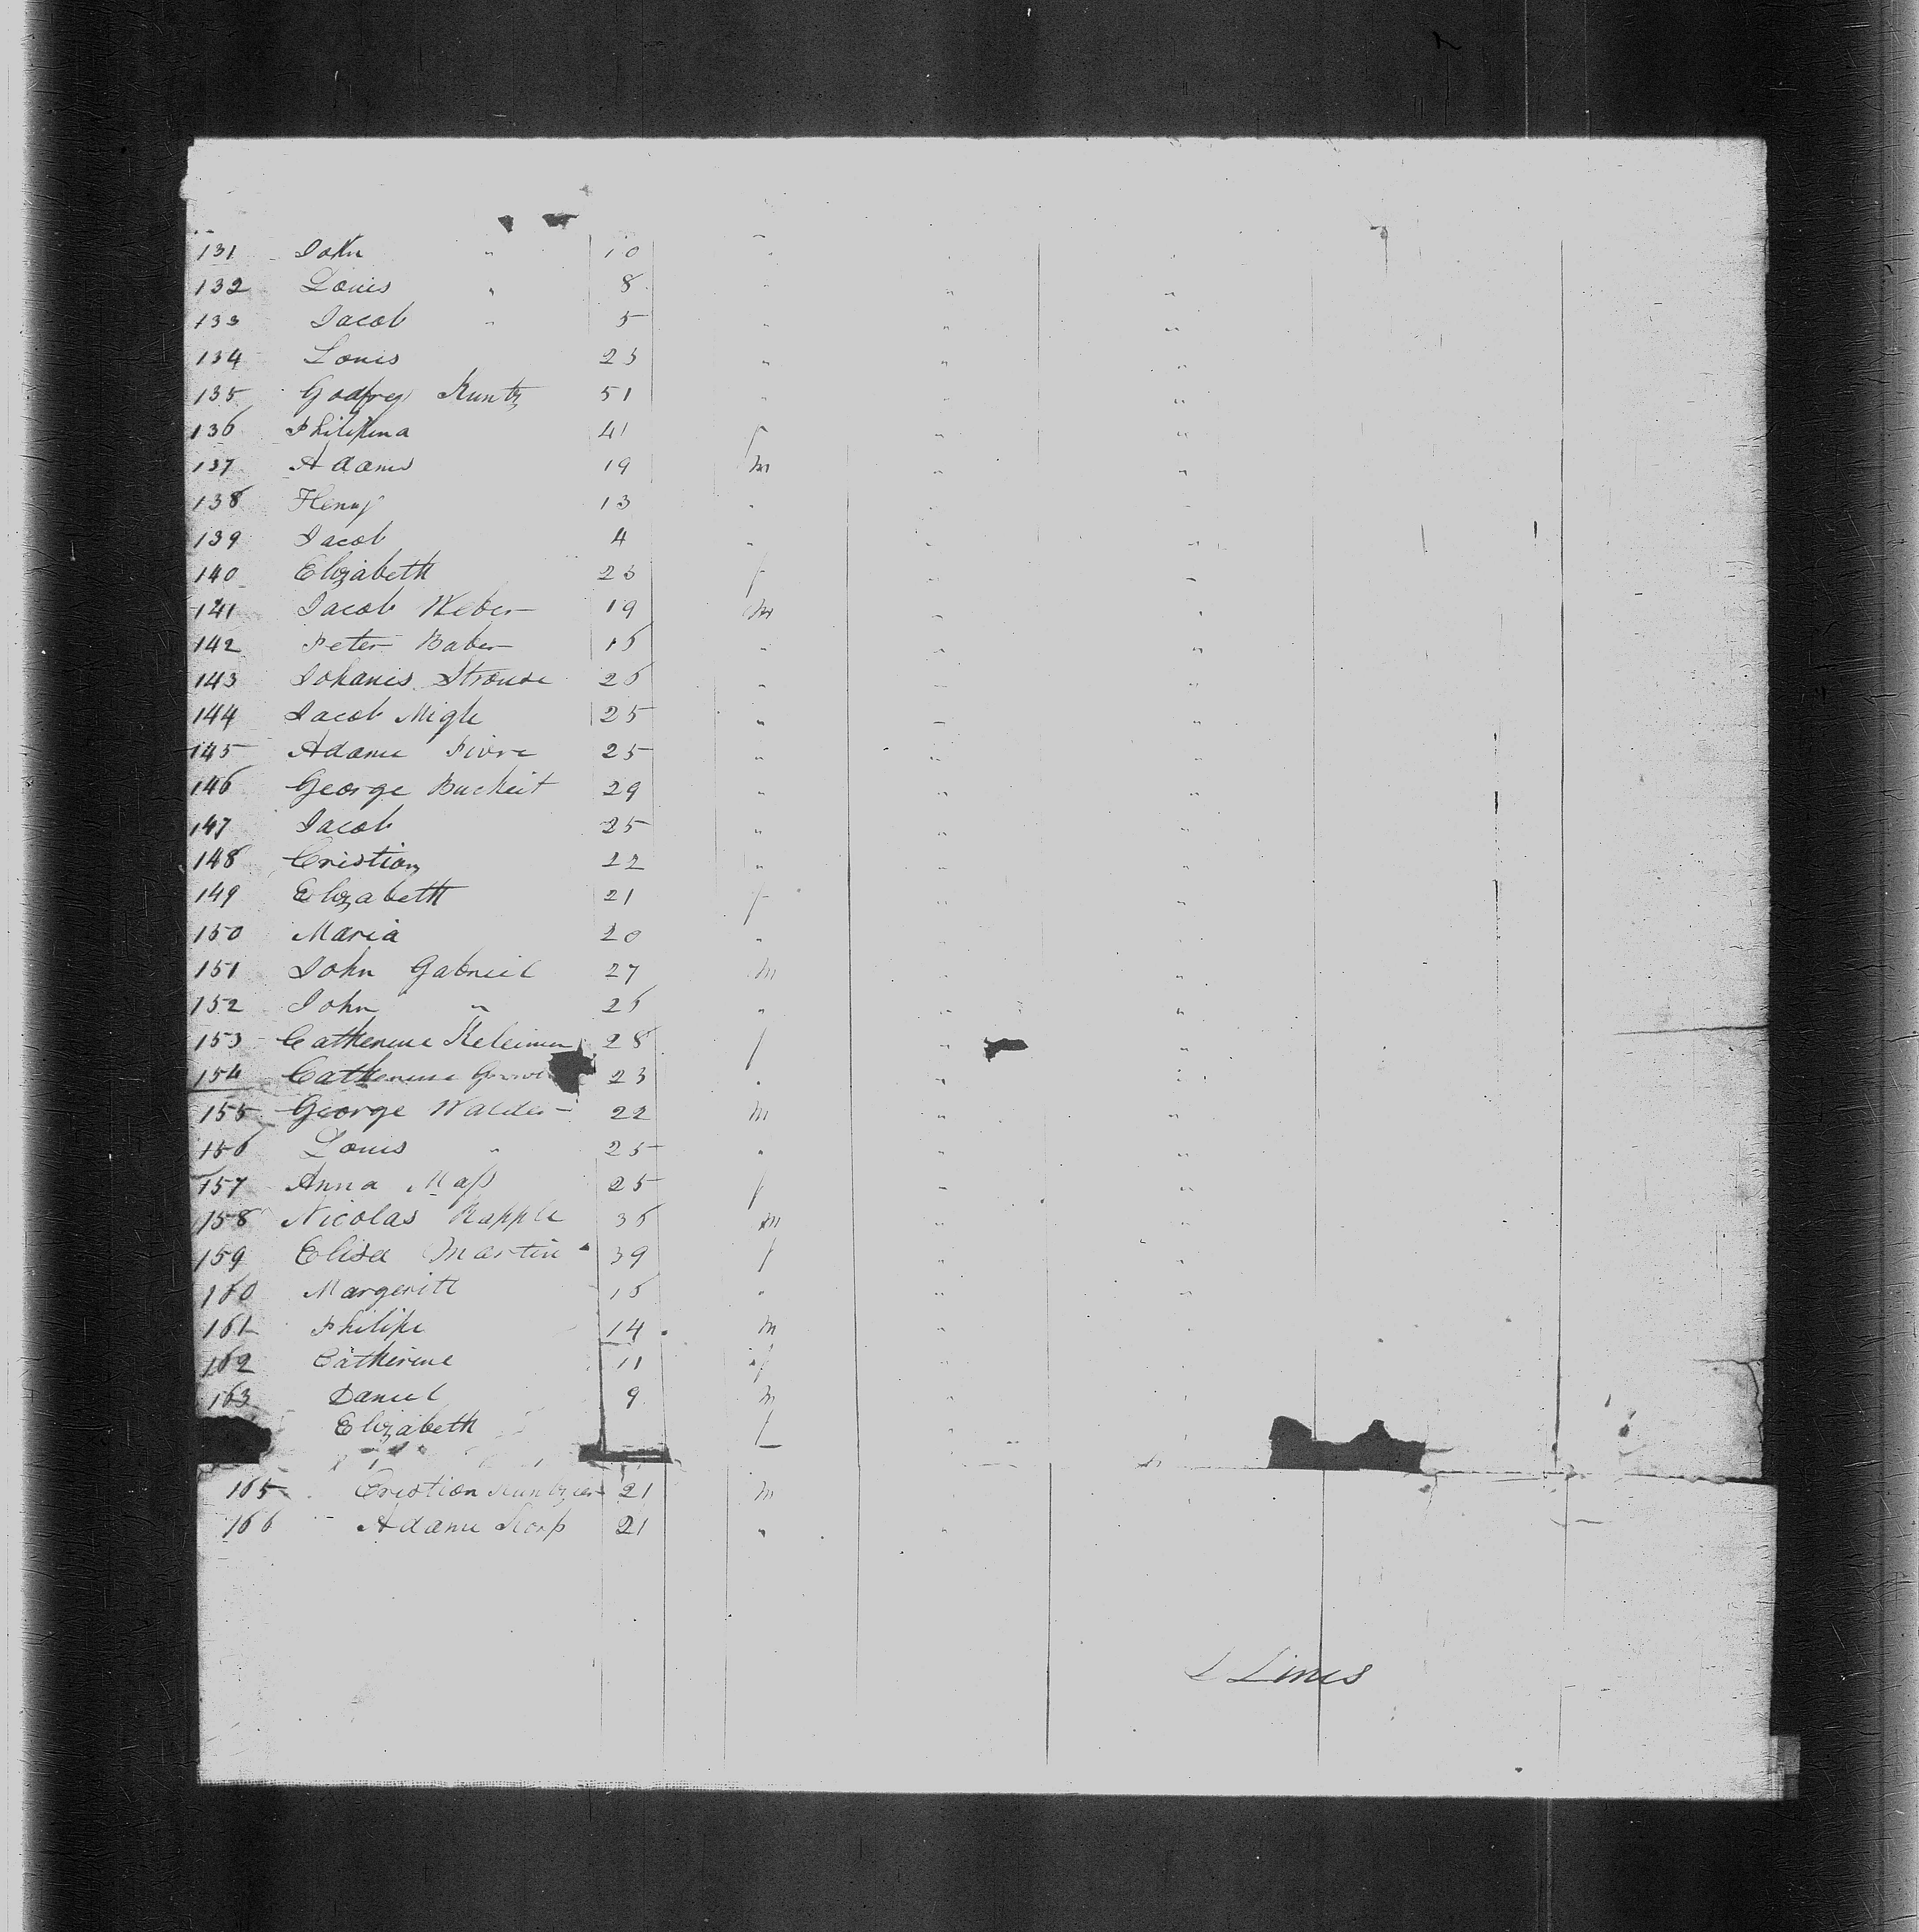 131 John " 10 "
132 Louis " 8 " " "
133 Jacob " 5 " " "
134 Louis 23 " " "
135 Godfrey Kuntz 51 " " "
136 Philipina 41 f " "
137 Adams 19 m " "
138 Henry 13 " " "
139 Jacob 4 " " "
140 Elizabeth 23 f " "
141 Jacob Weber 19 m " "
142 Peter Baber 16 " " "
143 Johanis Strouse 26 " " "
144 Jacob 25 " " "
145 Adame 25 " " "
146 George Bucheit 29 " " "
147 Jacob 25 " " "
148 Cristian 22 " " "
149 Elizabeth 21 f " "
150 Maria 20 " " "
151 John Gabriel 27 m " "
152 John " 26 " " "
153 Catherine 28 f " "
154 Catherine 23 " " "
155 George Walder 22 m " "
156 Louis " 25 " " "
157 Anna Maß 25 f " "
158 Nicolas Rapple 36 m " "
159 Elisa Martin 39 f " "
160 Margeritt 16 " " "
161 Philipe 14 m " "
162 Catherine 11 f " "
163 Daniel 9 m " "
Elizabeth f
165 Cristian 21 m
166 Adame 21 " "
Lines